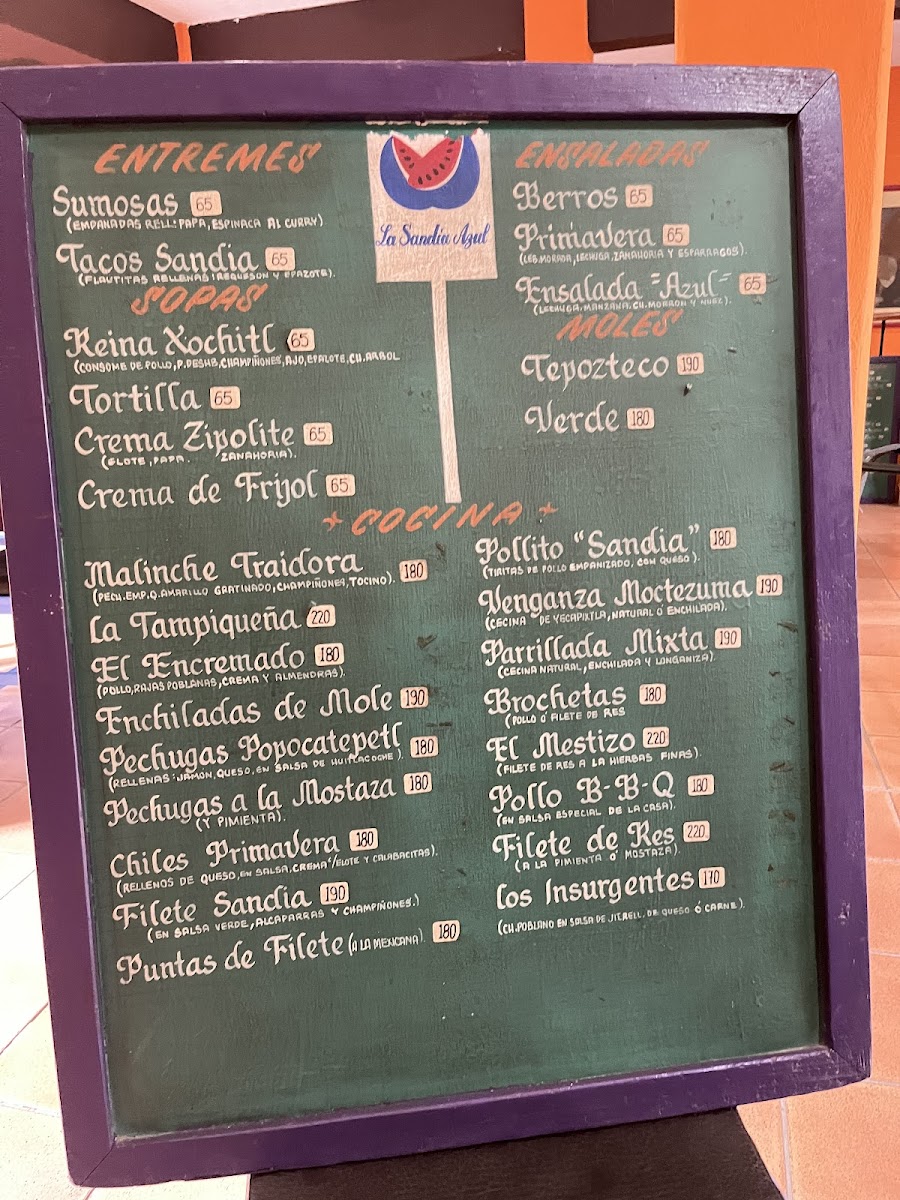 ENTREMES
Sumosas 65
(EMPANADAS RELL: PAPA, ESPINACA AL CURRY)
Tacos Sandia 65
(FLAUTITAS RELLENAS: REQUESON Y EPAZOTE).
SOPAS
Reina Xochitl 65
(CONSOME DE POLLO, P. DESHB, CHAMPIÑONES, AJO, EPALOTE, CH. ARBOL
Tortilla 65
Crema Zipolite 65
(ELOTE, PAPA. ZANAHORIA).
Crema de Frijol 65
La Sandía Azul
ENSALADAS
Berros 65
Primavera 65
(LEB. MORADA, LECHUGA, ZANAHORIA Y ESPARRAGOS).
Ensalada "Azul" 65
(LECHUGA, MANZANA, CH. MORRON Y NUEZ).
MOLES
Tepozteco 190
Verde 180
COCINA
Malinche Traidora
(PECH. EMP. Q. AMARILLO GRATINADO, CHAMPIÑONES, TOCINO). 180
La Tampiqueña 220
El Encremado 180
(POLLO, RAJAS POBLANAS, CREMA Y ALMENDRAS).
Enchiladas de Mole 190
Pechugas Popocatepetl 180
(RELLENAS: JAMON, QUESO, EN SALSA DE HUITLACOCHE).
Pechugas a la Mostaza 180
(Y PIMIENTA).
Chiles Primavera 180
(RELLENOS DE QUESO, EN SALSA, CREMA Y/ELOTE Y CALABACITAS).
Filete Sandia 190
(EN SALSA VERDE, ALCAPARRAS Y CHAMPIÑONES.)
Puntas de Filete (A LA MEXICANA). 180
Pollito "Sandia" 180
(TIRITAS DE POLLO EMPANIZADO, CON QUESO).
Venganza Moctezuma 190
(CECINA DE YECAPIXTLA, NATURAL Ó ENCHILADA).
Parrillada Mixta 190
(CECINA NATURAL, ENCHILADA Y LONGANIZA).
Brochetas 180
(POLLO Ó FILETE DE RES
El Mestizo 220
(FILETE DE RES A LA HIERBAS FINAS).
Pollo B-B-Q 180
(EN SALSA ESPECIAL DE LA CASA).
Filete de Res 220
(A LA PIMIENTA Ó MOSTAZA).
Los Insurgentes 170
(CH. POBLANO EN SALSA DE JIT. RELL. DE QUESO Ó CARNE).